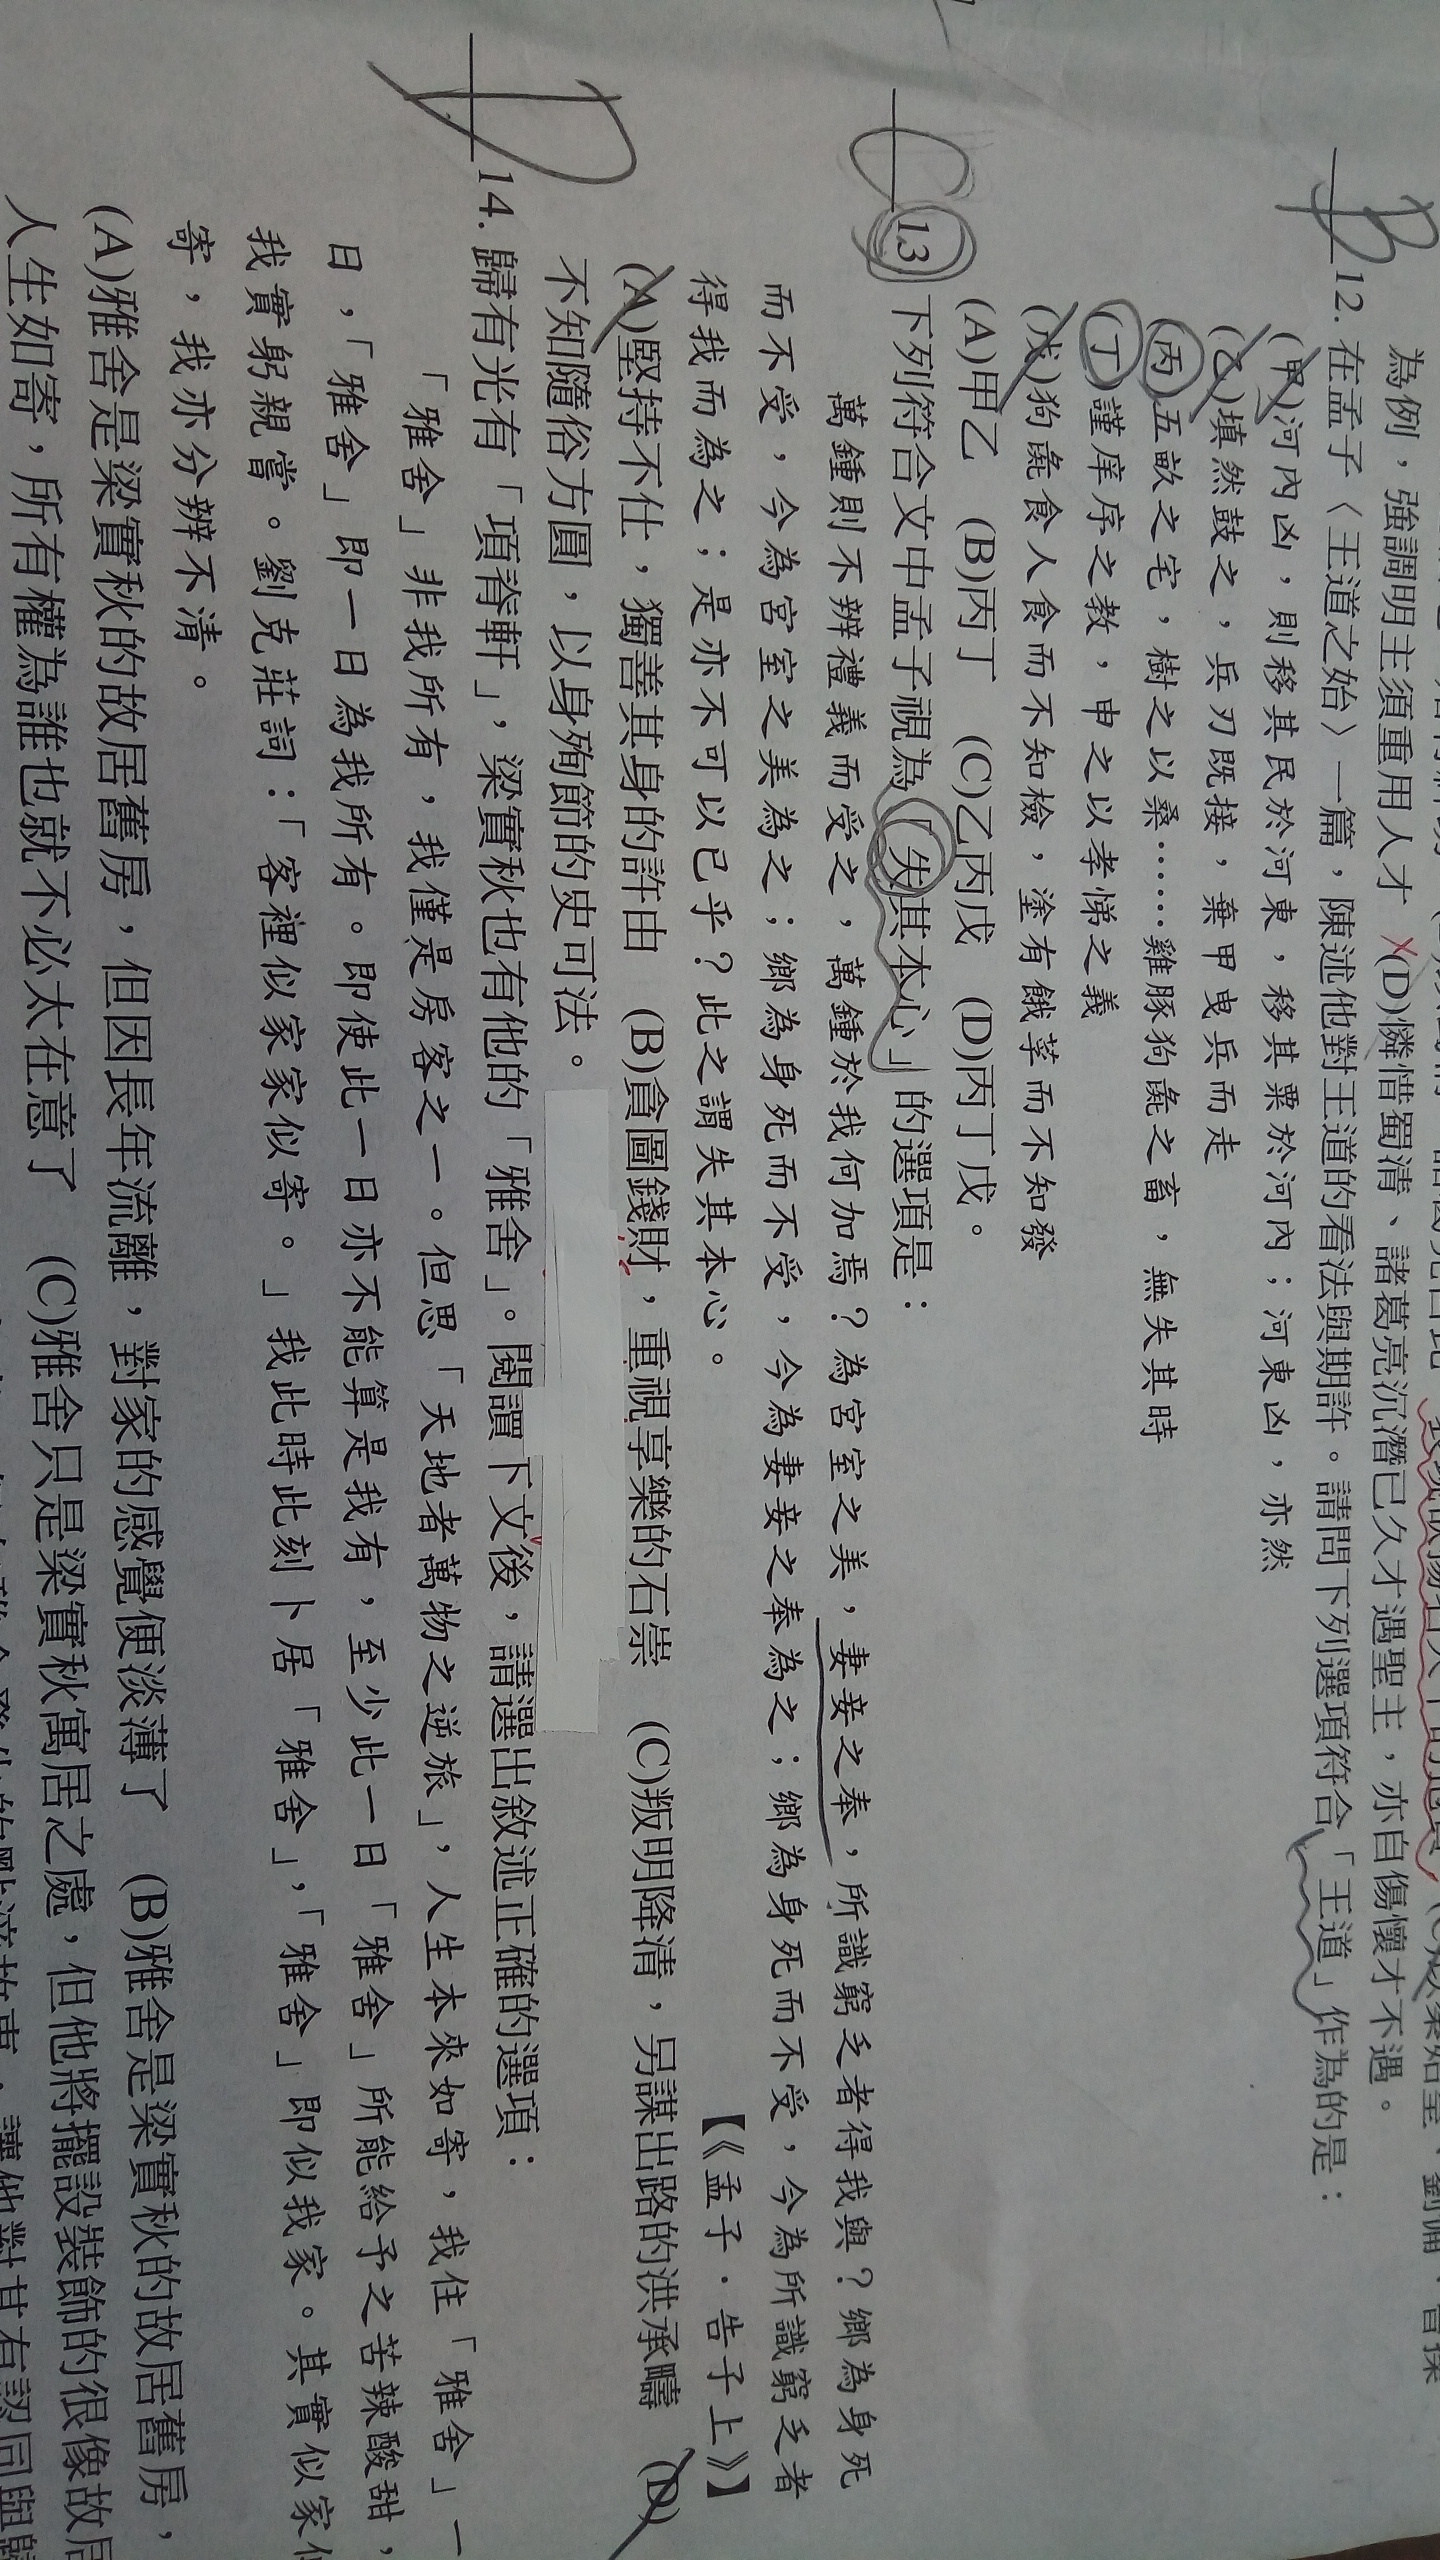 為例，強調明主須重用人才 (D)憐惜蜀清、諸葛亮沉潛已久才遇聖主，亦自傷懷才不遇。
B 12. 在孟子〈王道之始〉一篇，陳述他對王道的看法與期許。請問下列選項符合「王道」作為的是：
(甲)河內凶，則移其民於河東，移其粟於河內；河東凶，亦然
(乙)填然鼓之，兵刃既接，棄甲曳兵而走
(丙)五畝之宅，樹之以桑……雞豚狗彘之畜，無失其時
(丁)謹庠序之教，申之以孝悌之義
(戊)狗彘食人食而不知檢，塗有餓莩而不知發
(A)甲乙 (B)丙丁 (C)乙丙戊 (D)丙丁戊。
C 13 下列符合文中孟子視為「失其本心」的選項是：
萬鍾則不辨禮義而受之，萬鍾於我何加焉？為宮室之美，妻妾之奉，所識窮乏者得我與？鄉為身死
而不受，今為宮室之美為之；鄉為身死而不受，今為妻妾之奉為之；鄉為身死而不受，今為所識窮乏者
得我而為之；是亦不可以已乎？此之謂失其本心。 【《孟子．告子上》】
(A)堅持不仕，獨善其身的許由 (B)貪圖錢財，重視享樂的石崇 (C)叛明降清，另謀出路的洪承疇 (D)
不知隨俗方圓，以身殉節的史可法。
D 14. 歸有光有「項脊軒」，梁實秋也有他的「雅舍」。閱讀下文後，請選出敘述正確的選項：
「雅舍」非我所有，我僅是房客之一。但思「天地者萬物之逆旅」，人生本來如寄，我住「雅舍」一
日，「雅舍」即一日為我所有。即使此一日亦不能算是我有，至少此一日「雅舍」所能給予之苦辣酸甜，
我實躬親嘗。劉克莊詞：「客裡似家家似寄。」我此時此刻卜居「雅舍」，「雅舍」即似我家。其實似家似
寄，我亦分辨不清。
(A)雅舍是梁實秋的故居舊房，但因長年流離，對家的感覺便淡薄了 (B)雅舍是梁實秋的故居舊房，
人生如寄，所有權為誰也就不必太在意了 (C)雅舍只是梁實秋寓居之處，但他將擺設裝飾的很像故居